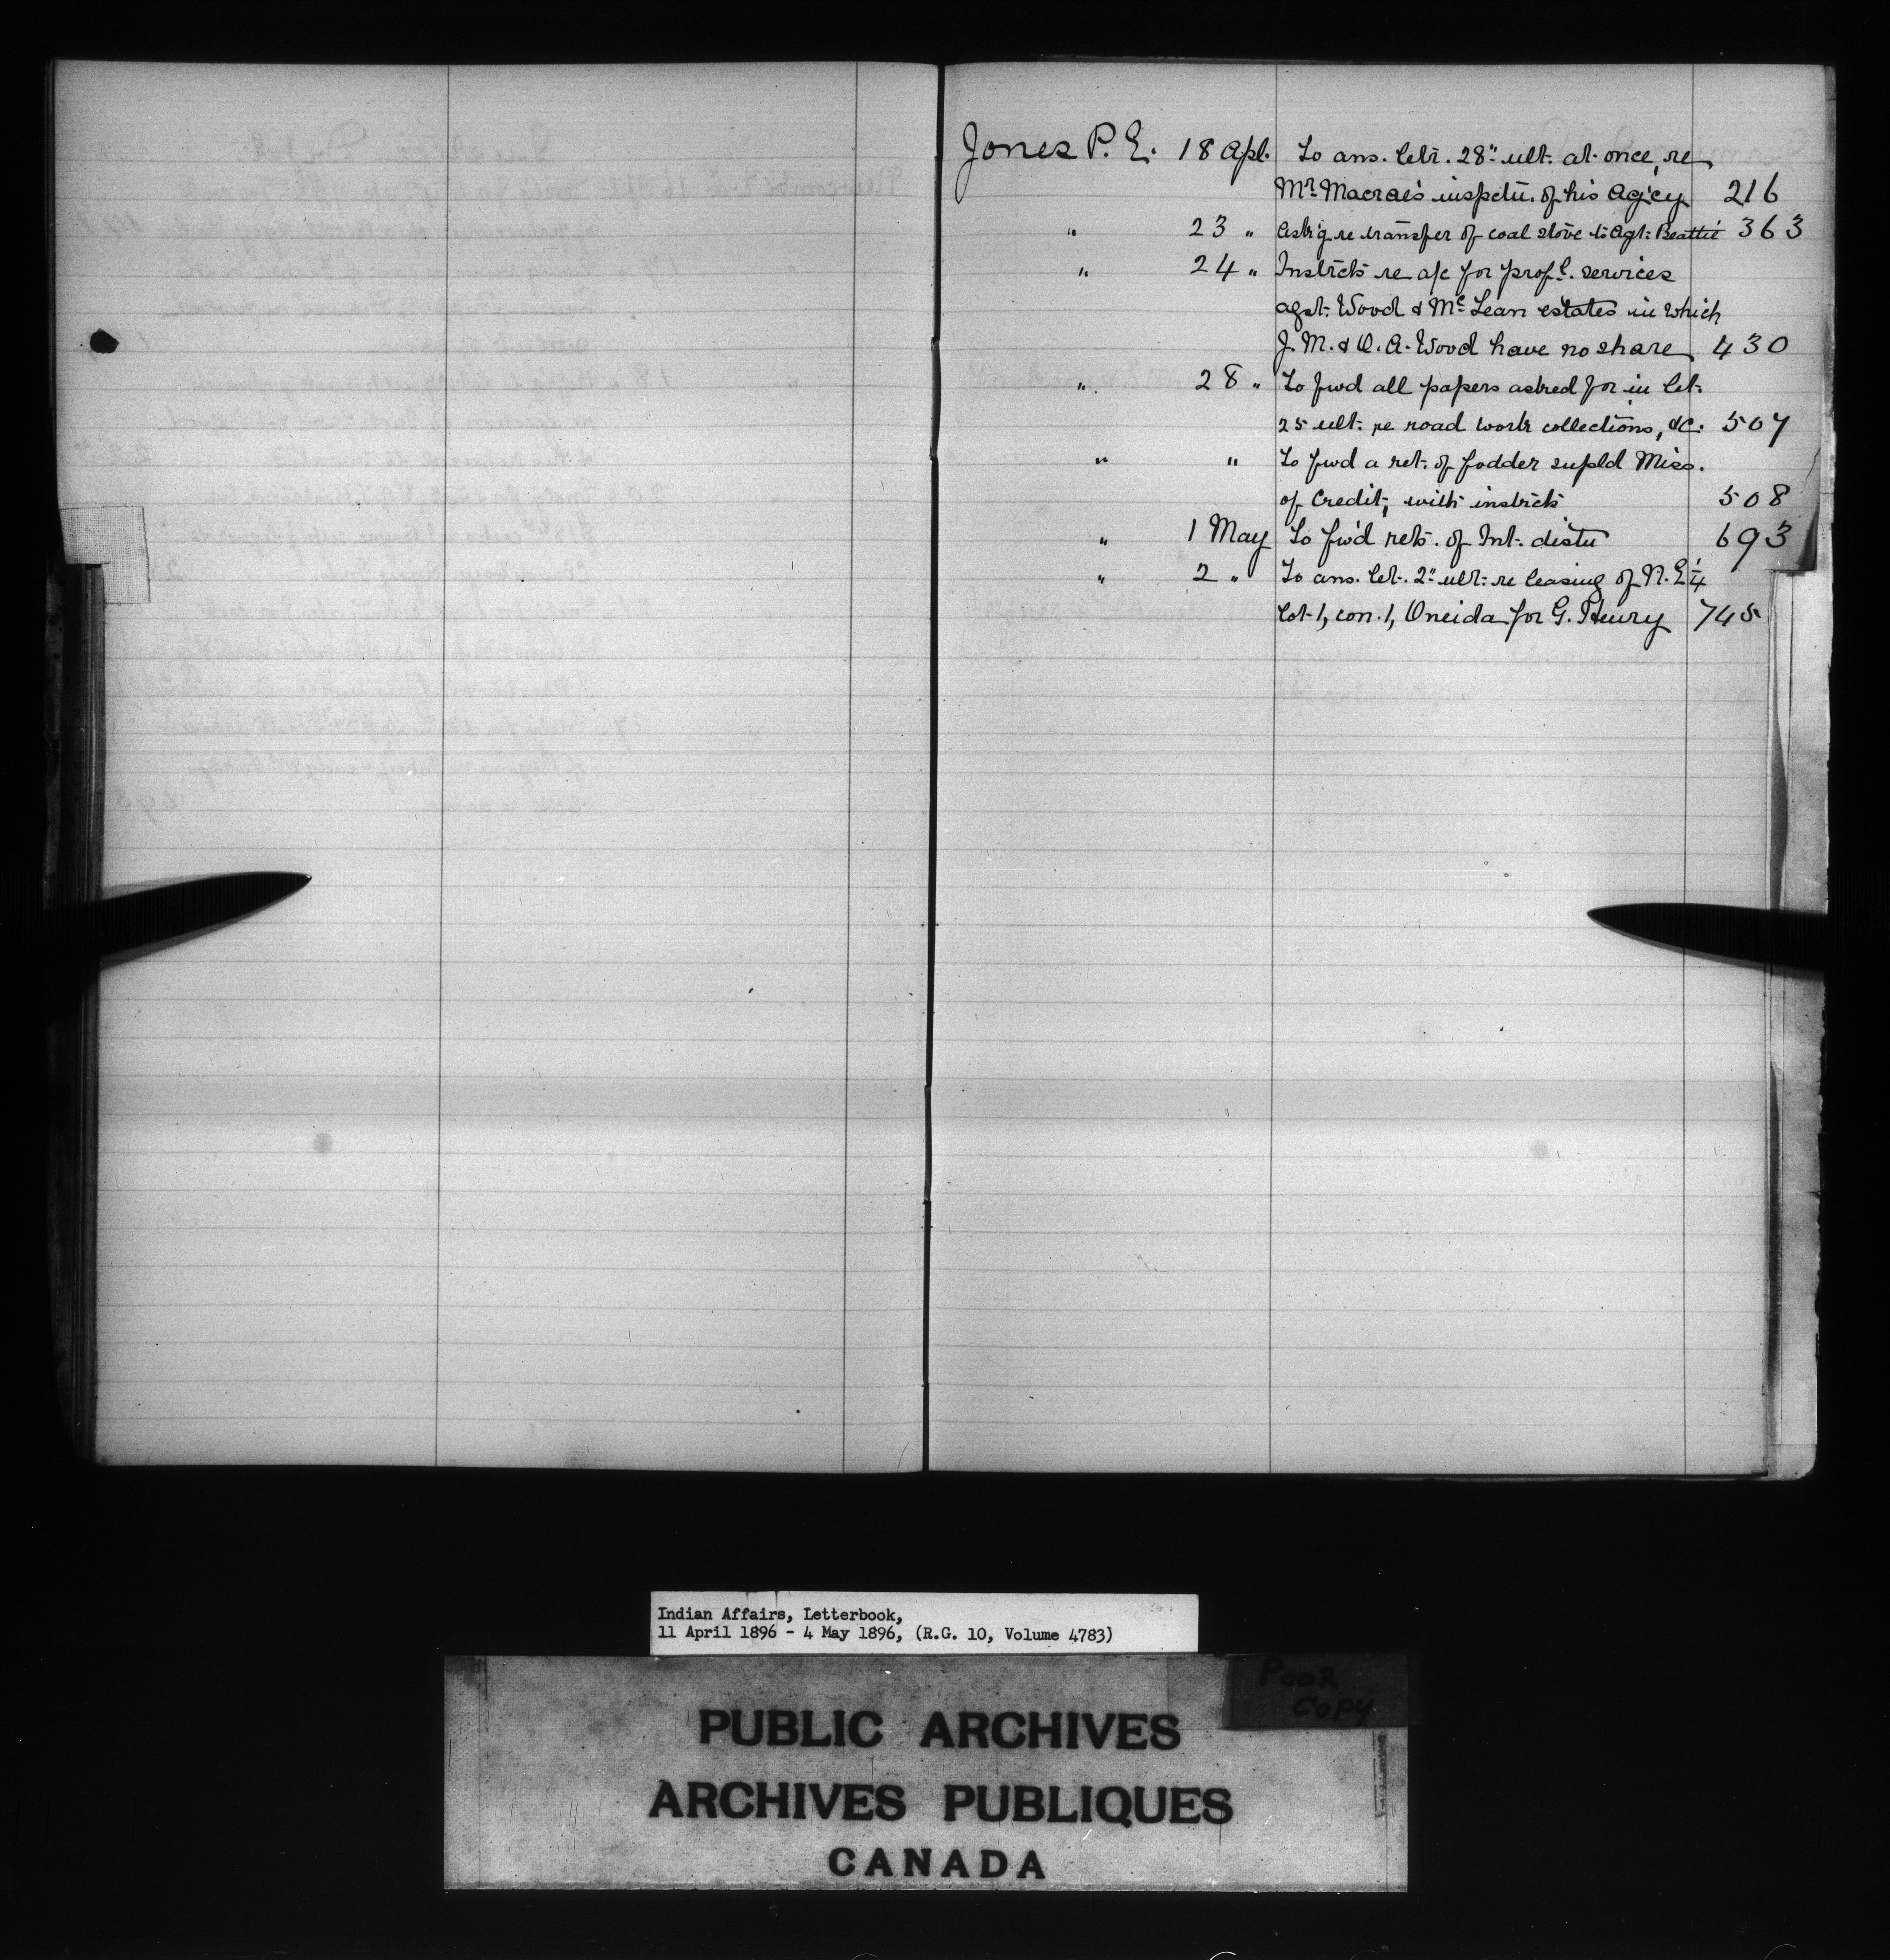 Jones P. E. 18 Apl. To ans. letr. 28" ult. at once, re
Mr. Macrae's inspctn. of his Ag'cy 216
" 23 " Ask'g re transfer of coal stove to Agt. Beattie 363
" 24 " Instrcts re a/c for prof'l. services
agst. Wood & McLean estates in which
J. M. & O. A. Wood have no share 430
" 28 " To fwd all papers asked for in let.
25 ult. re road work collections, &c. 507
" " To fwd a ret. of fodder supld Miss.
of Credit, with instrcts 508
" 1 May To fw'd rets. of Int. distn 693
" 2 " To ans. let. 2" ult. re leasing of N. E 1/4
lot 1, con. 1, Oneida for G. Henry 745
Indian Affairs, Letterbook,
11 April 1896 - 4 May 1896, (R.G. 10, Volume 4783)
POOR
COPY
PUBLIC ARCHIVES
ARCHIVES PUBLIQUES
CANADA